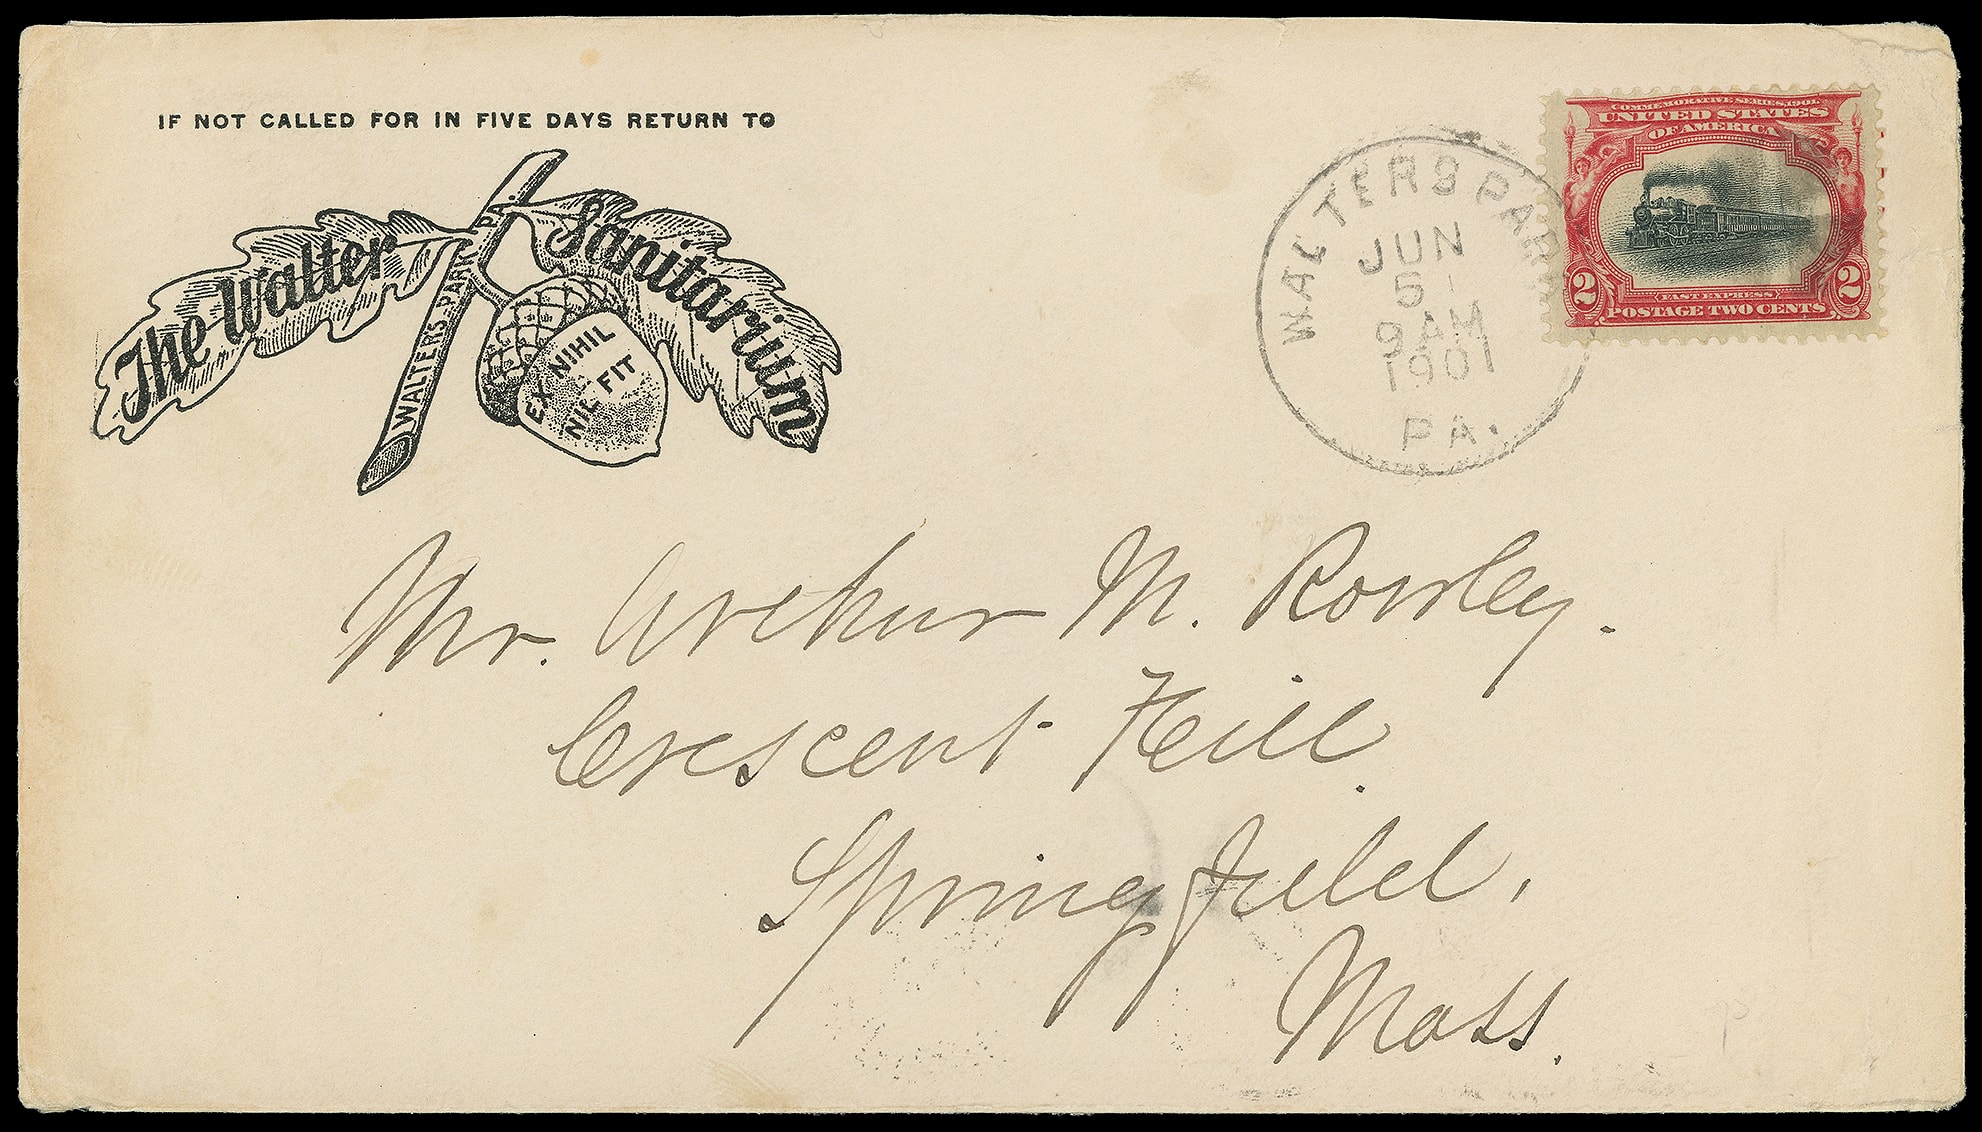 IF NOT CALLED FOR IN FIVE DAYS RETURN TO
The Walter Sanitarium
WALTERS PARK PA.
EX NIHIL
NIL FIT
WALTERS PARK
JUN
5
9 AM
1901
PA.
COMMEMORATIVE SERIES, 1901.
UNITED STATES
OF AMERICA
FAST EXPRESS
2 POSTAGE TWO CENTS 2
Mr. Arthur M. Rowley.
Crescent Hill.
Springfield,
Mass.